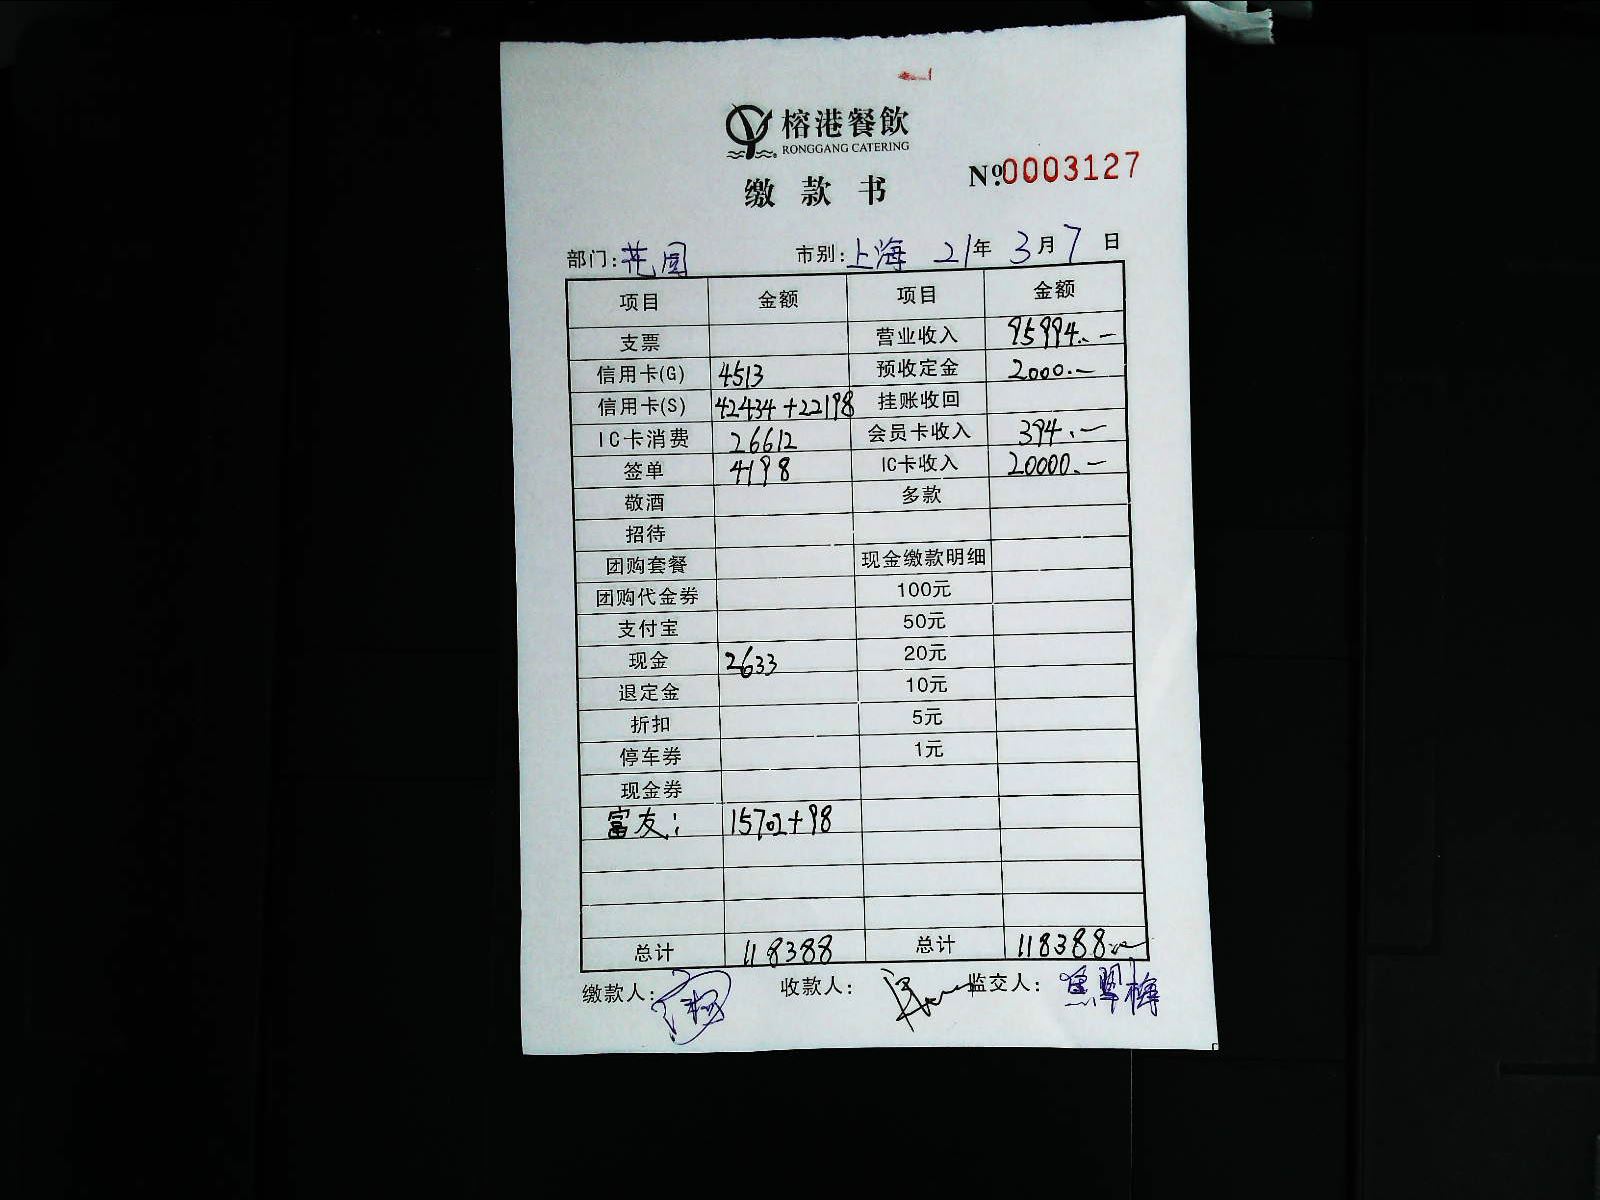 榕港餐飲
RONGGANG CATERING
缴款书 №0003127
部门:花园 市别:上海 21年3月7日
项目 金额 项目 金额
支票 营业收入 95994.-
信用卡(G) 4513 预收定金 2000.-
信用卡(S) 42434+22198 挂账收回
IC卡消费 26612 会员卡收入 394.-
签单 4198 IC卡收入 20000.-
敬酒 多款
招待
团购套餐 现金缴款明细
团购代金券 100元
支付宝 50元
现金 2633 20元
退定金 10元
折扣 5元
停车券 1元
现金券
富友: 15702+98
总计 118388 总计 118388.-
缴款人: 收款人: 监交人:焦翠梅